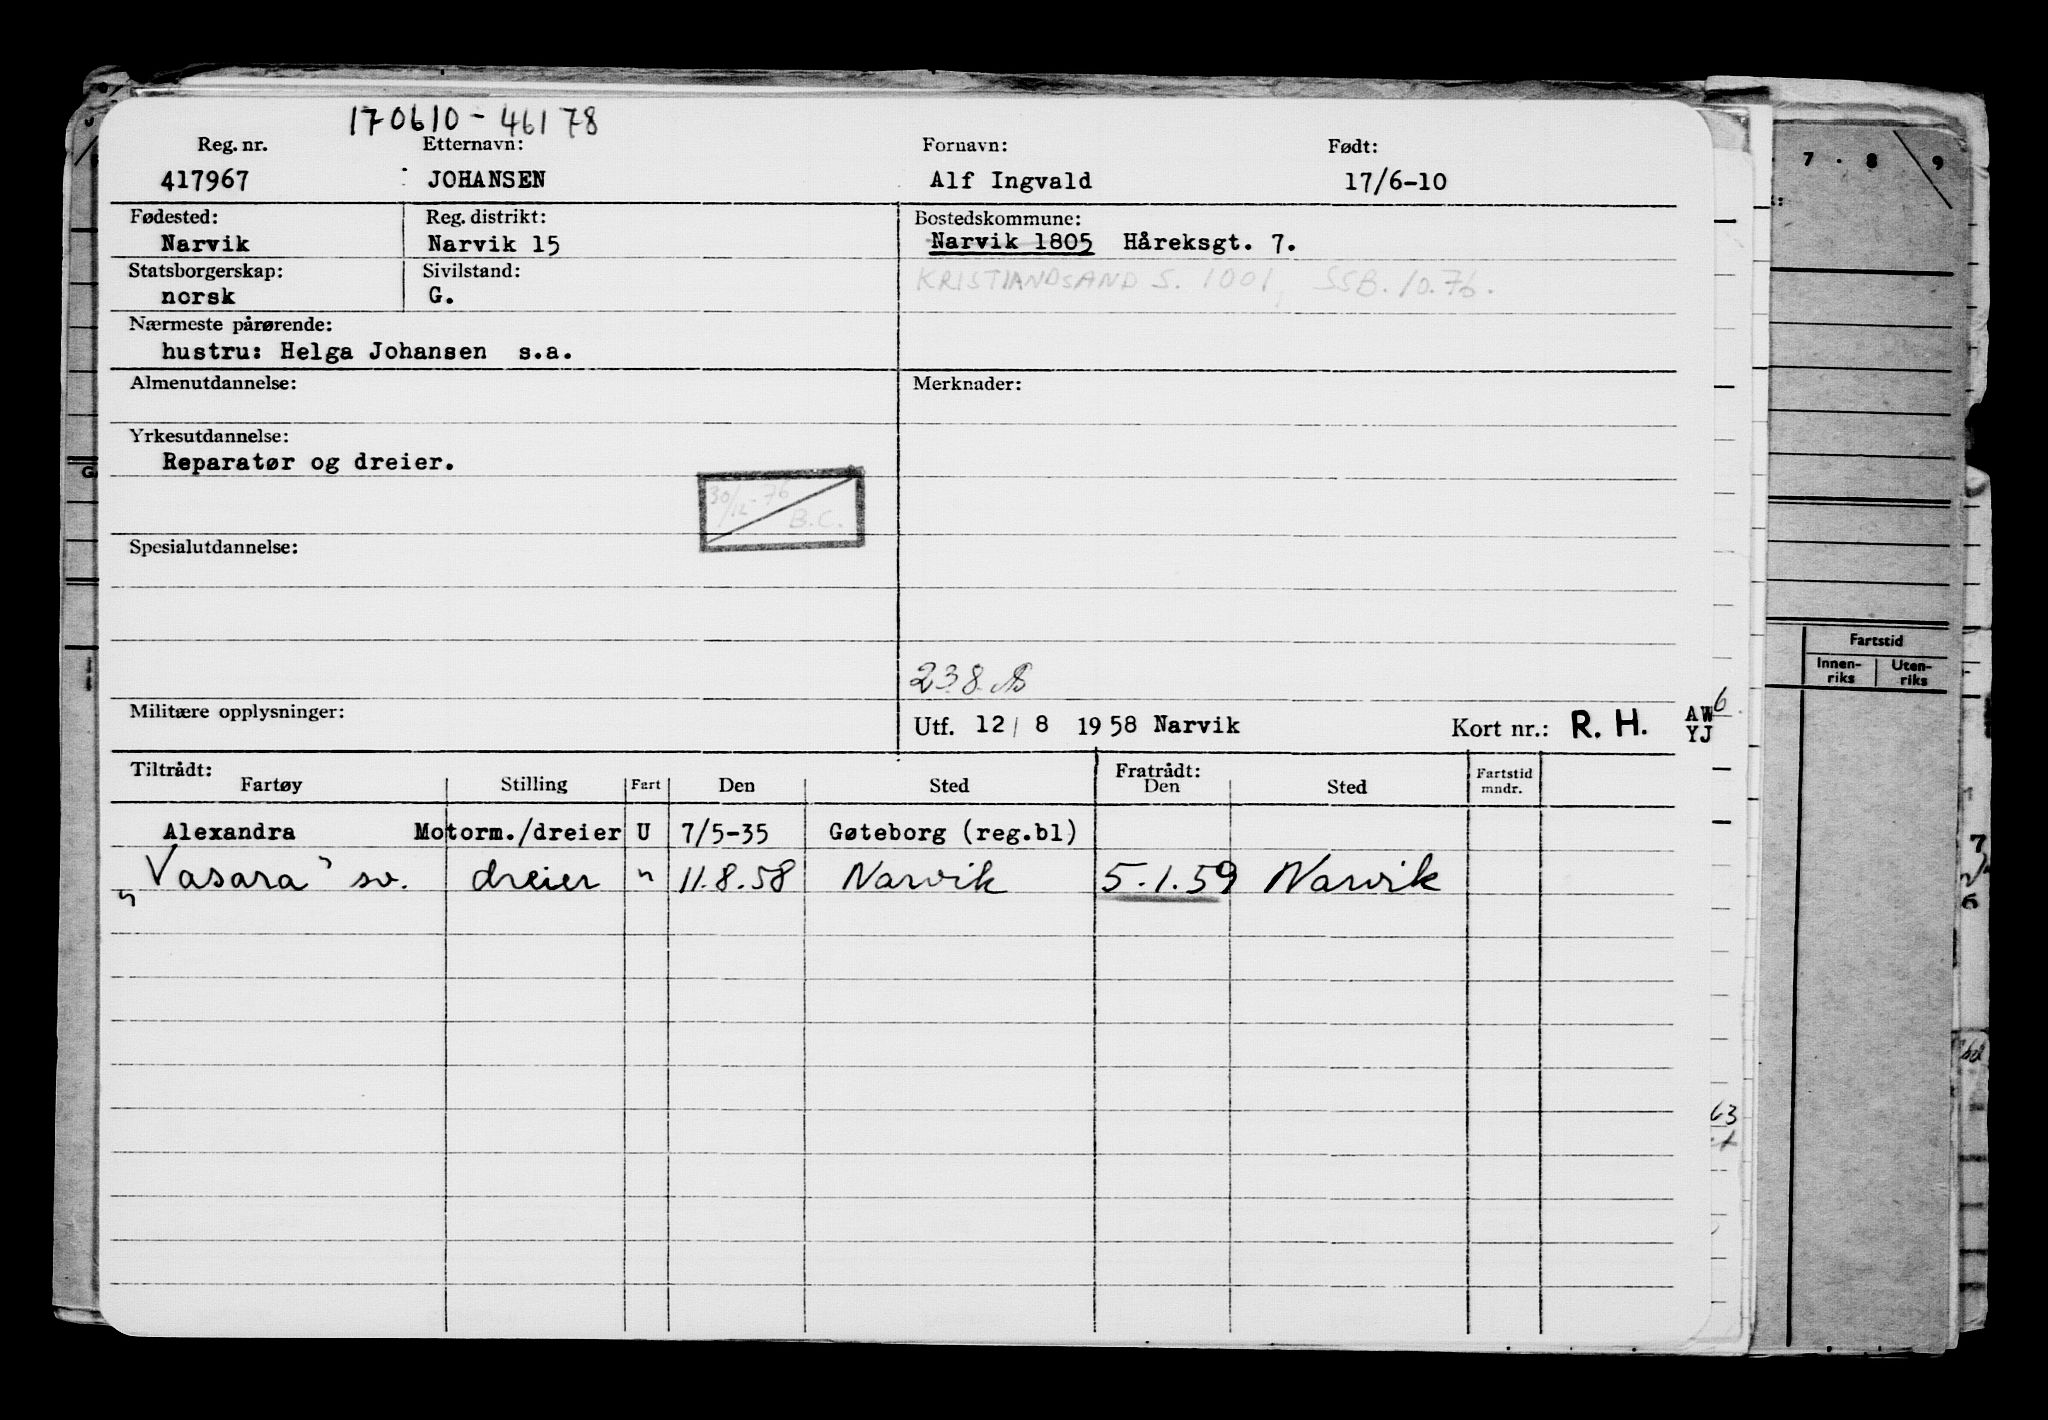 170610-46178
Reg. nr. Etternavn: Fornavn: Født:
417967 JOHANSEN Alf Ingvald 17/6-10
Fødested: Reg. distrikt: Bostedskommune:
Narvik Narvik 15 Narvik 1805 Håreksgt. 7.
Statsborgerskap: Sivilstand: KRISTIANDSAND S. 1001, SSB. 10.76.
norsk G.
Nærmeste pårørende:
hustru: Helga Johansen s.a.
Almenutdannelse: Merknader:
Yrkesutdannelse:
Reparatør og dreier.
30/12-76
B.C.
Spesialutdannelse:
238
Militære opplysninger: Utf. 12/8 1958 Narvik Kort nr.: R. H. AW
YJ
Tiltrådt: Fratrådt:
Fartøy Stilling Fart Den Sted Den Sted Fartstid mndr.
Alexandra Motorm./dreier U 7/5-35 Gøteborg (reg.bl)
"Vasara" sv. dreier " 11.8.58 Narvik 5.1.59 Narvik
7 . 8 9
Fartstid
Innen-
riks
Uten-
riks
6
63
7
6